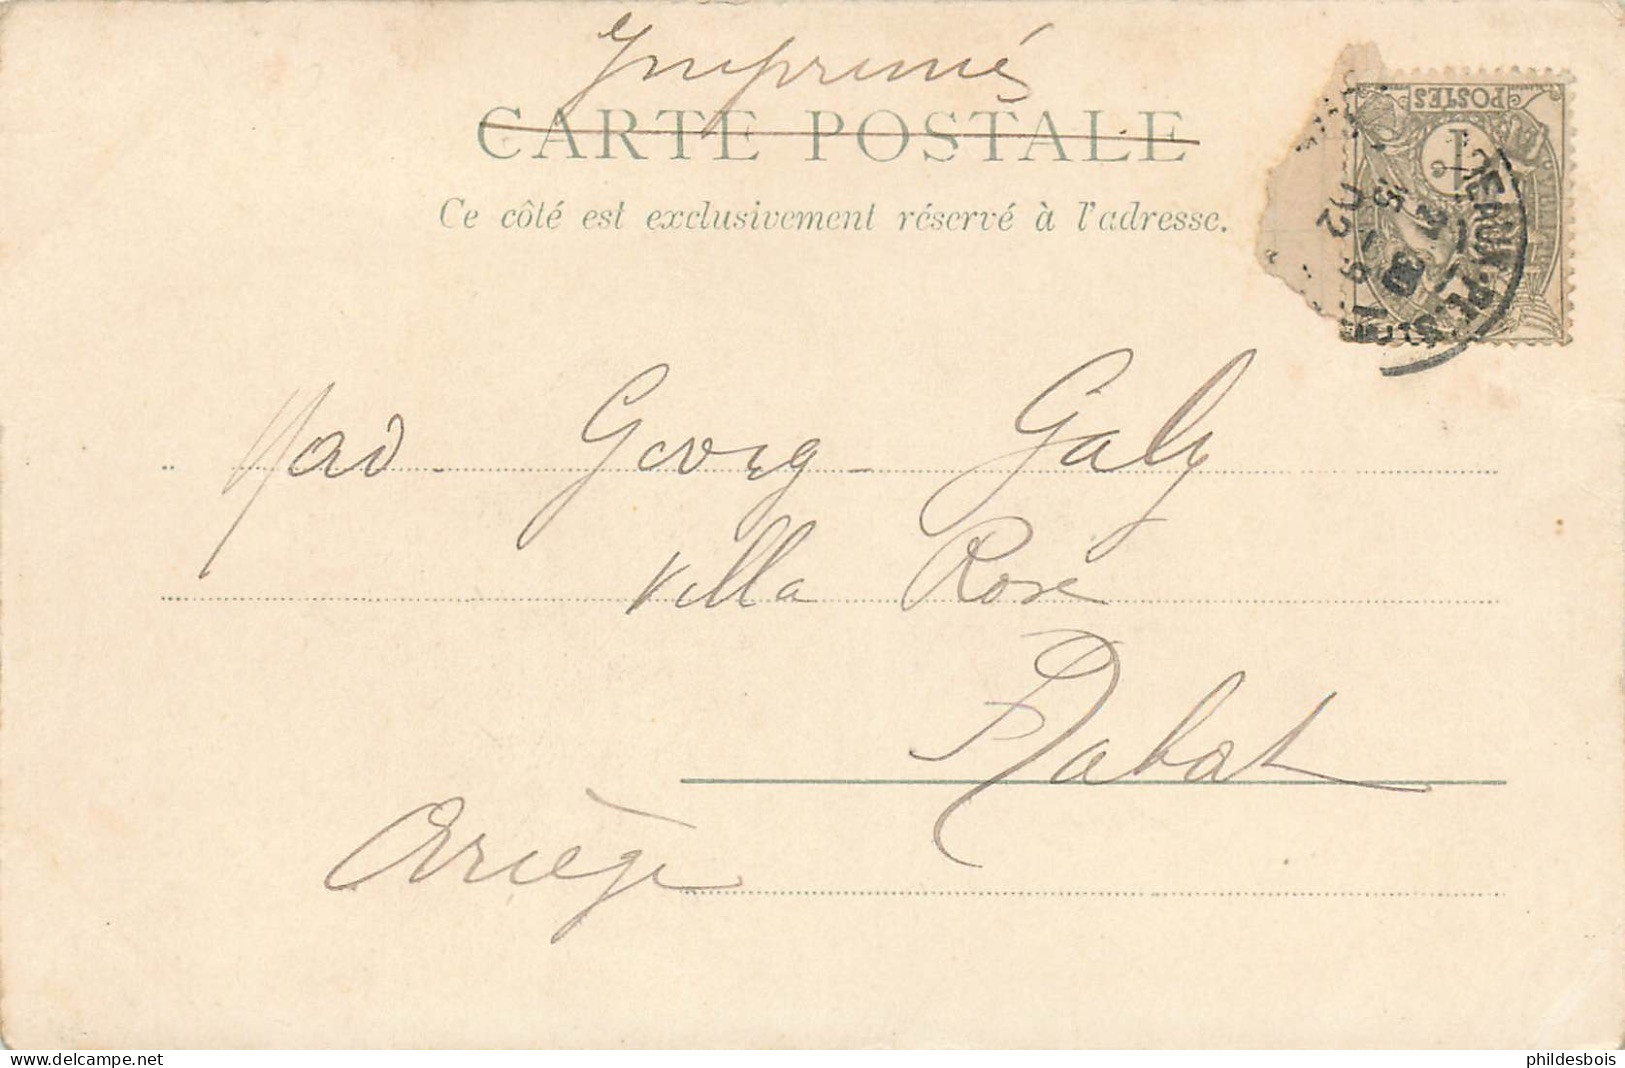 Imprimés
CARTE POSTALE
Ce côté est exclusivement réservé à l'adresse.
POSTES
Mad. Georg. Galy
Villa Rose
Rabat
Ariège
delcampe.net
phildesbois